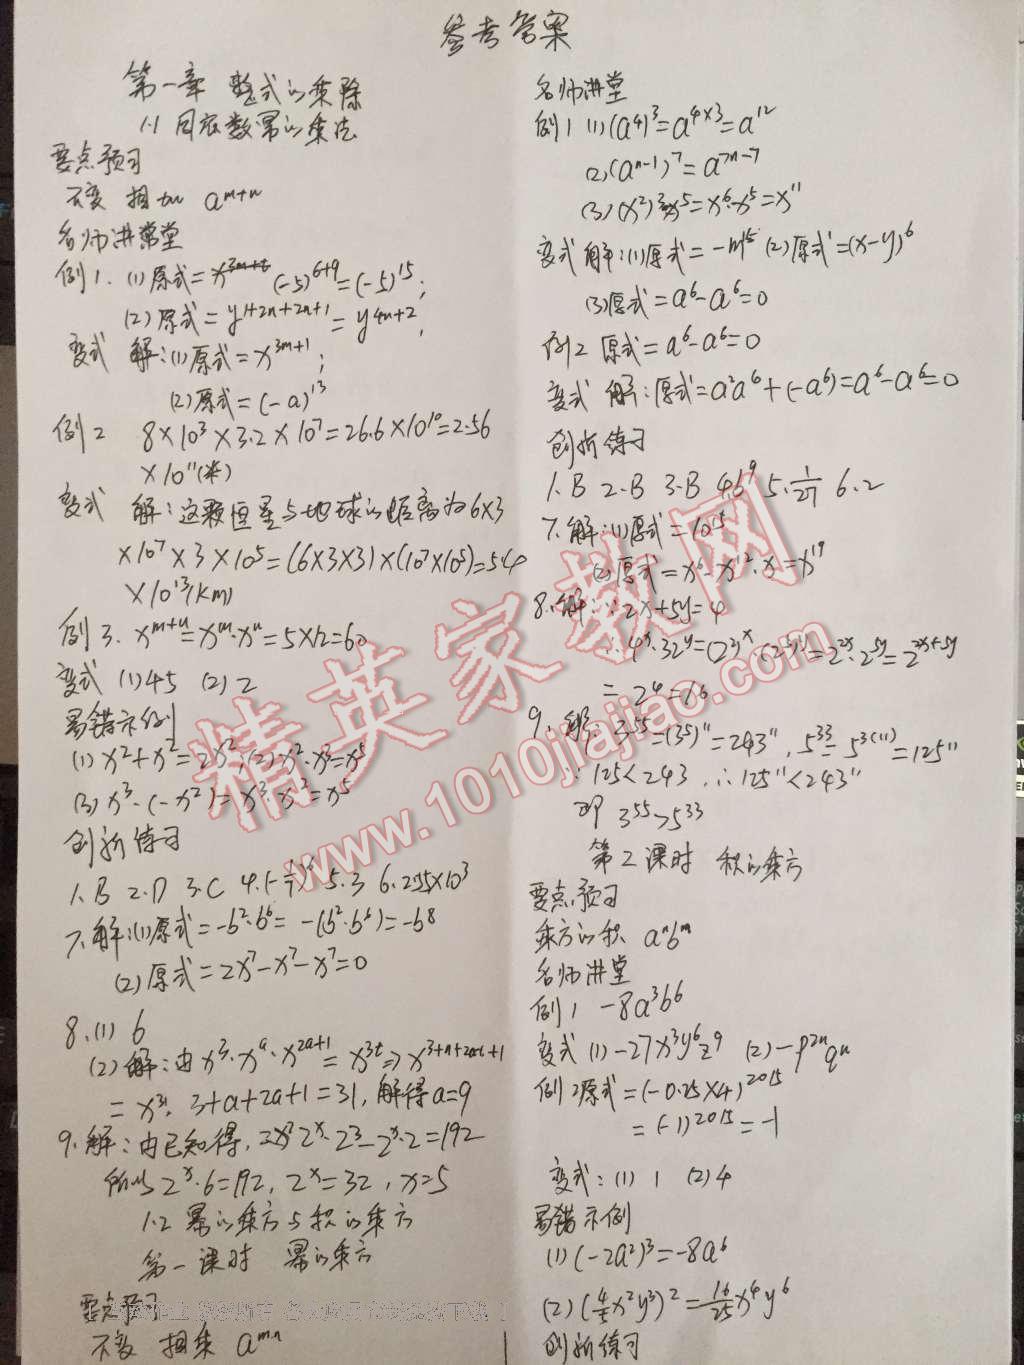 参考答案
第一章 整式的乘除
1.1 同底数幂的乘法
要点预习
不变 相加 a^{m+n}
名师讲堂
例1. (1)原式= (-5)^{6+9}=(-5)^{15};
(2)原式=y^{1+2n+2n+1}=y^{4n+2};
变式 解:(1)原式=x^{3m+1};
(2)原式=(-a)^{13}
例2 8×10^3×3.2×10^7=26.6×10^{10}=2.56
×10^{11}(米)
变式 解:这颗恒星与地球的距离为6×3
×10^7×3×10^5=(6×3×3)×(10^7×10^5)=54
×10^{13}(km)
例3. x^{m+n}=x^m·x^n=5×12=60
变式 (1)45 (2)2
易错示例
(1)x^2+x^2=2x^2,(2)x^2·x^3=x^5
(3)x^3·(-x^2)=x^3·x^2=x^5
创新练习
1.B 2.D 3.C 4. 5.3 6. ×10^3
7.解:(1)原式=-b^2·b^6=-(b^2·b^6)=-b8
(2)原式=2x^7-x^7-x^7=0
8.(1) 6
(2)解:由x^3·x^a·x^{2a+1}= ⇒
=x^{31}, 3+a+2a+1=31,解得a=9
9.解:由已知得, 2^x·2^3-2^x·2=192
所以2^x·6=192, 2^x=32, x=5
1.2 幂的乘方与积的乘方
第一课时 幂的乘方
要点预习
不变 相乘 a^{mn}
名师讲堂
例1 (1)(a^4)^3=a^{4×3}=a^{12}
(2)(a^{n-1})^7=a^{7n-7}
(3)(x^2)^3·x^5=x^6·x^5=x^{11}
变式 解:(1)原式=-m^{15} (2)原式=(x-y)^6
(3)原式=a^6-a^6=0
例2 原式=a^6-a^6=0
变式 解:原式=a^2a^6+(-a^6)=a^6-a^6=0
创新练习
1.B 2.B 3.B 4.b^9 5.\frac{1}{27} 6.2
7.解:(1)原式=10^{15}
(2)原式=x^6·x^{12}·x=x^{19}
8.解:∵2x+5y=4
∴4^x·32^y=(2^2)^x·(2^5)^y=2^{2x}·2^{5y}=2^{2x+5y}
=2^4=16
9.解:3^{55}=(3^5)^{11}=243^{11},5^{33}=5^{3(11)}=125^{11}
∵125<243,∴125^{11}<243^{11}
即 3^{55}>5^{33}
第2课时 积的乘方
要点预习
乘方的积 a^nb^n
名师讲堂
例1 -8a^3b^6
变式 (1)-27x^3y^6z^9 (2)-p^{2n}q^n
例2原式=(-0.25×4)^{2015}
=(-1)^{2015}=-1
变式:(1) 1 (2)4
易错示例
(1)(-2a^2)^3=-8a^6
(2)(\frac{4}{5}x^2y^3)^2=\frac{16}{25}x^4y^6
创新练习
精英家教网
www.1010jiajiao.com